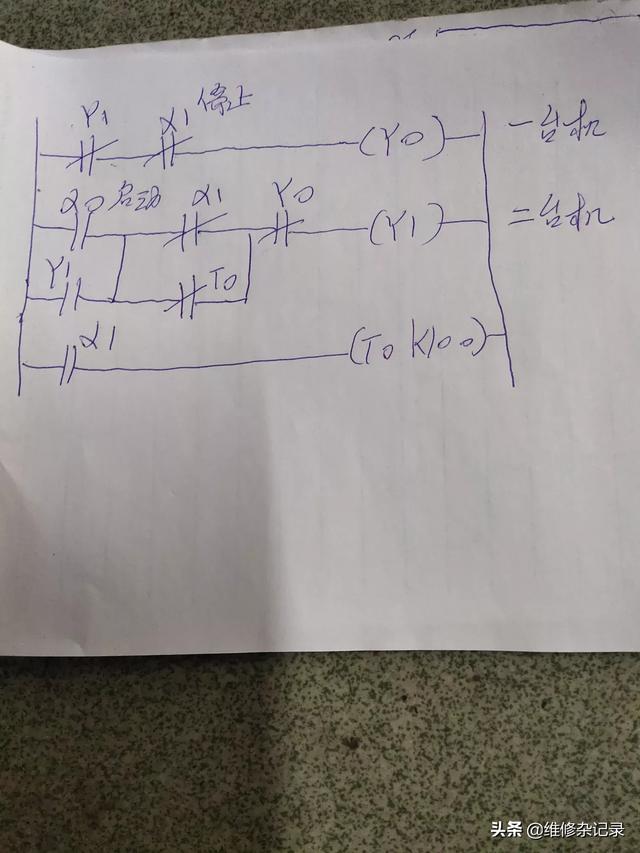 Y1 X1 停止 (Y0) 一台机
X0 启动 X1 Y0 (Y1) 二台机
Y1 T0
X1 (T0 K100)
头条 @维修杂记录